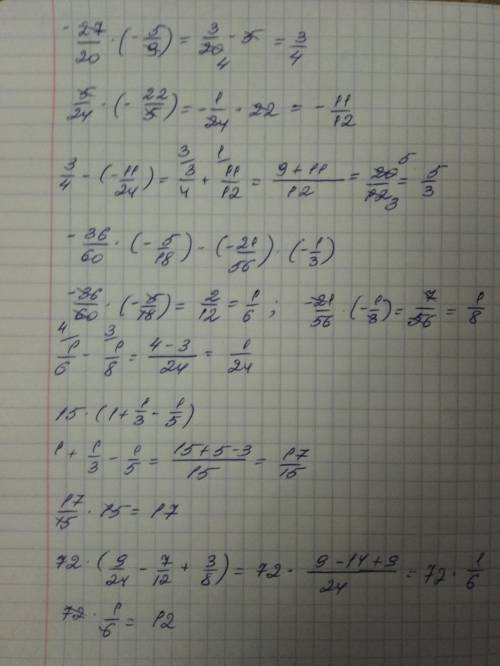 -27/20 · (-5/9) = 3/20 · 5 = 3/4
4
5/24 · (-22/5) = -1/24 · 22 = -11/12
3 1
3/4 - (-11/24) = 3/4 + 11/12 = 9+11/12 = 20/12 = 5/3
5 3
-36/60 · (-5/18) - (-21/56) · (-1/3)
-36/60 · (-5/18) = 2/12 = 1/6 ; -21/56 · (-1/3) = 7/56 = 1/8
4 3
1/6 - 1/8 = 4-3/24 = 1/24
15 · (1 + 1/3 - 1/5)
1 + 1/3 - 1/5 = 15+5-3/15 = 17/15
17/15 · 15 = 17
72 · (9/24 - 7/12 + 3/8) = 72 · 9-14+9/24 = 72 · 1/6
72 · 1/6 = 12